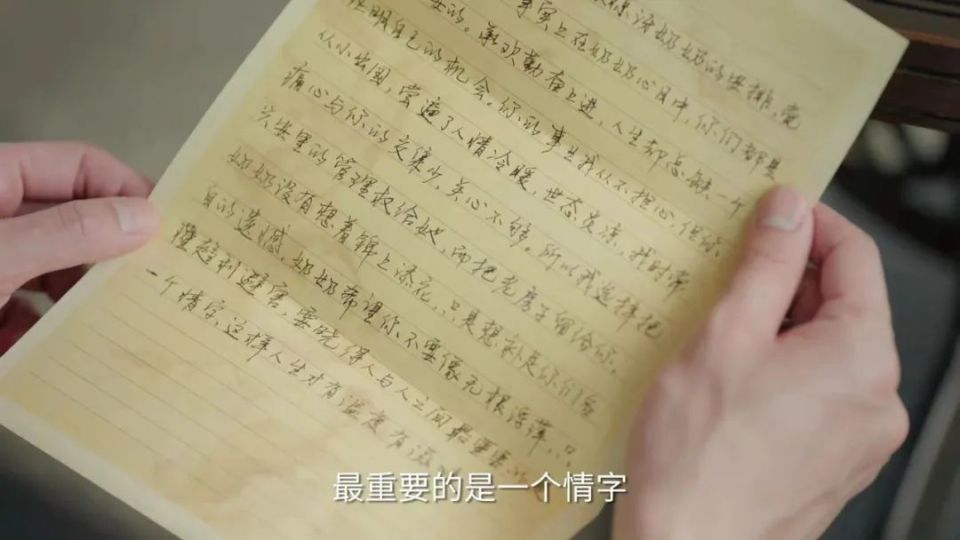 奶奶的安排,
事实上在奶奶心目中,你们都是
要的。欢勤奋上进,人生却总缺一个
证明自己的机会。你的事业我从不担心,但你
从小出国,尝遍了人情冷暖,世态炎凉,我时常
痛心与你的交集少,关心不够。所以我选择把
里的管理权给她,而把老房子留给你。
奶奶没有想着锦上添花,只是想补足你们各
自的遗憾。奶奶希望你不要像无根浮萍,只
懂趋利避害,要晓得人与人之间最重要的
一个情字,这样人生才有温度有
最重要的是一个情字